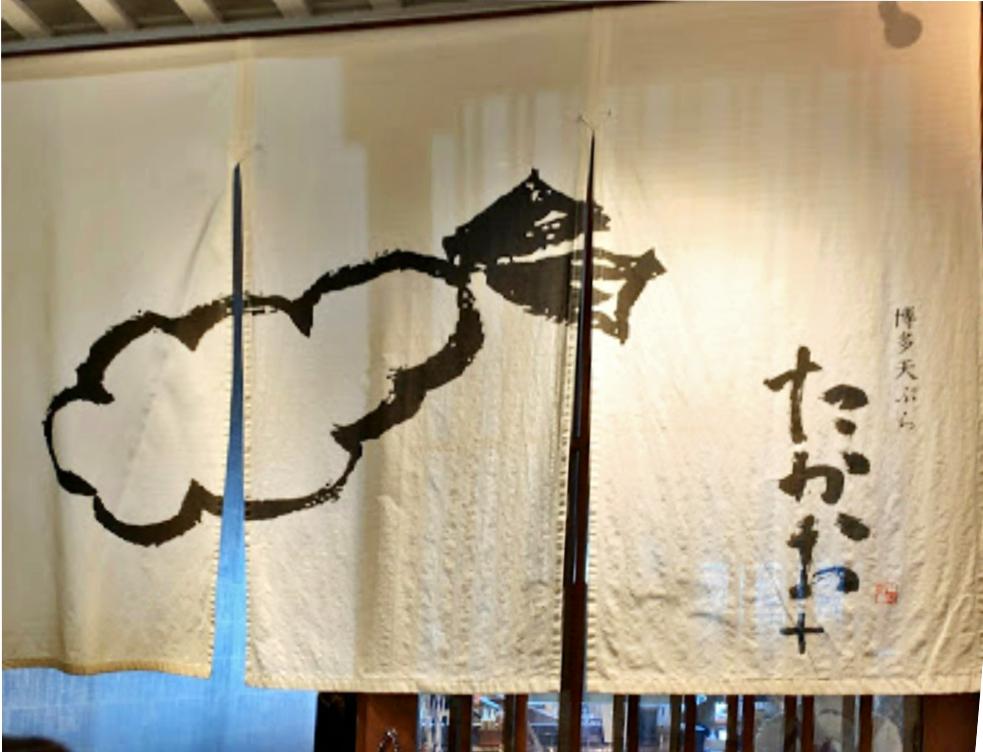 博多天ぷら
たかお